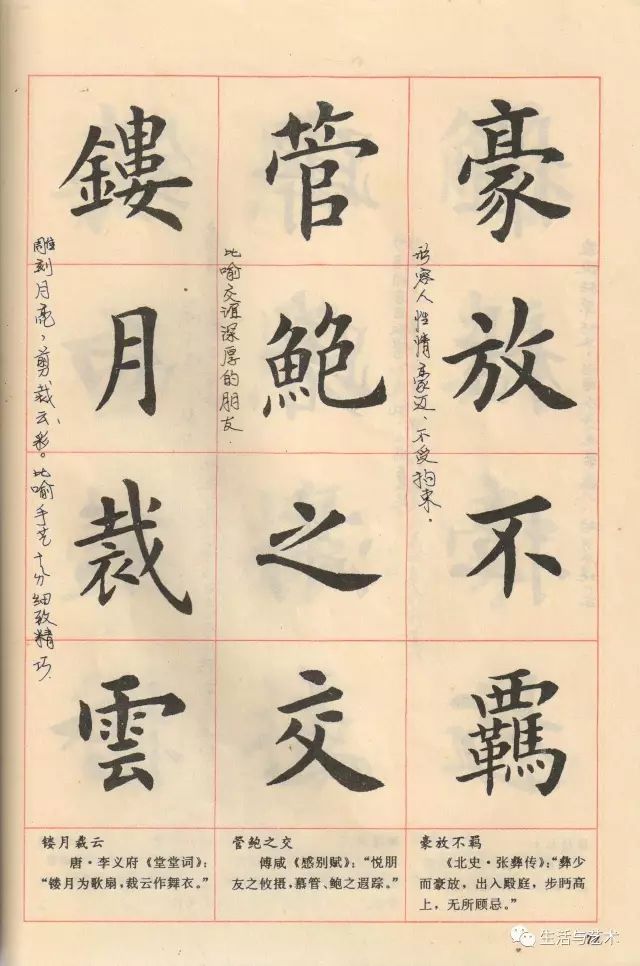 豪放不羈
形容人性情豪迈,不受拘束.
管鮑之交
比喻交谊深厚的朋友.
鏤月裁雲
雕刻月亮,剪裁云彩。比喻手艺十分细致精巧.
镂月裁云
唐·李义府《堂堂词》:
“镂月为歌扇,裁云作舞衣。”
管鲍之交
傅咸《感别赋》:“悦朋
友之攸摄,慕管、鲍之遐踪。”
豪放不羁
《北史·张彝传》:“彝少
而豪放,出入殿庭,步眄高
上,无所顾忌。”
生活与艺术